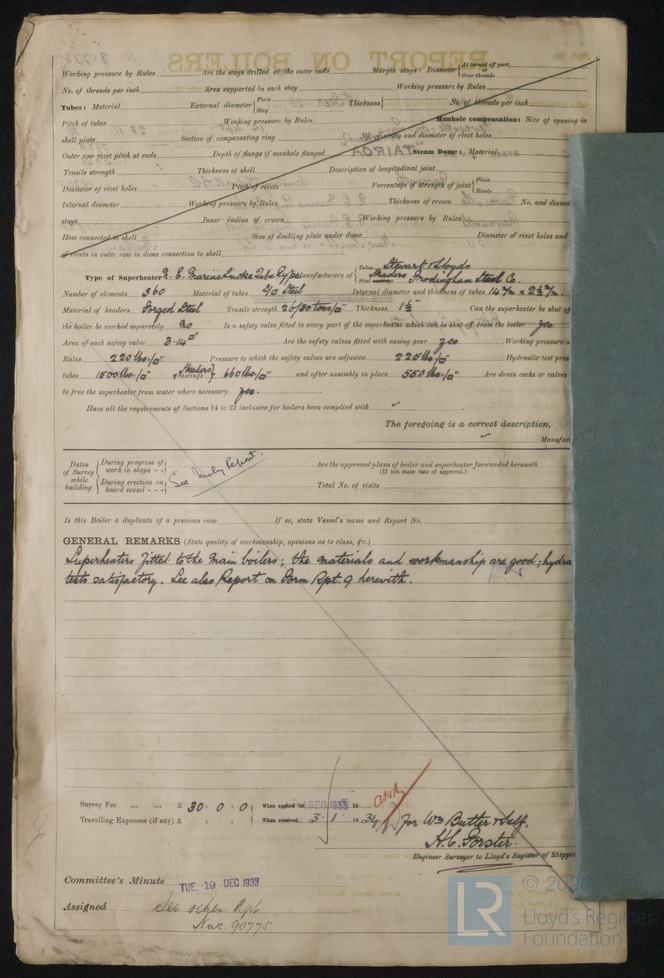 Working pressure by Rules Are the stays drilled at the outer ends Margin stays: Diameter At turned off part, Over threads
No. of threads per inch Area supported by each stay Working pressure by Rules
Tubes: Material External diameter Plate Stay Thickness No. of threads per inch
Pitch of tubes Working pressure by Rules Manhole compensation: Size of opening in
shell plate Section of compensating ring No. of rivets and diameter of rivet holes
Outer row rivet pitch at ends Depth of flange if manhole flanged Steam Dome: Material
Tensile strength Thickness of shell Description of longitudinal joint
Diameter of rivet holes Pitch of rivets Percentage of strength of joint Plate Rivets
Internal diameter Working pressure by Rules Thickness of crown No. and diamet
stays Inner radius of crown Working pressure by Rules
How connected to shell Size of doubling plate under dome Diameter of rivet holes and
of rivets in outer row in dome connection to shell
Type of Superheater N. E. Marine Smoke Tube Type Manufacturers of Tubes Stewart & Lloyds Headers Frodingham Steel Co.
Number of elements 360 Material of tubes S/D Steel Internal diameter and thickness of tubes 14 m/m × 2½ m/m.
Material of headers Forged Steel Tensile strength 26/30 tons/□" Thickness 1½" Can the superheater be shut of
the boiler be worked separately No Is a safety valve fitted to every part of the superheater which can be shut off from the boiler yes
Area of each safety valve 3·14 □" Are the safety valves fitted with easing gear yes Working pressure
Rules 220 lbs./□" Pressure to which the safety valves are adjusted 225 lbs/□" Hydraulic test pres
tubes 1500 lbs./□" Headers castings 660 lbs/□" and after assembly in place 550 lbs./□" Are drain cocks or valves
to free the superheater from water where necessary yes.
Have all the requirements of Sections 14 to 22 inclusive for boilers been complied with ✓
The foregoing is a correct description,
Manufac
Dates of Survey while building During progress of work in shops - - During erection on board vessel - - - See Mchy Report. Are the approved plans of boiler and superheater forwarded herewith (If not state date of approval.)
Total No. of visits
Is this Boiler a duplicate of a previous case If so, state Vessel's name and Report No.
GENERAL REMARKS (State quality of workmanship, opinions as to class, &c.)
Superheaters fitted to the main boilers; the materials and workmanship are good; hydra
tests satisfactory. See also Report on Form Rpt. 9 herewith.
Survey Fee £ 30 : 0 : 0 When applied for DEC 1933 19
Travelling Expenses (if any) £ : : When received, 3. 1 1934
For Wm Butler & Self.
H. C. Forster.
Engineer Surveyor to Lloyd's Register of Shippin
Committee's Minute TUE. 19 DEC 1933
Assigned See other Rpt
Nwc. 90775
LR
Lloyd's Register
Foundation